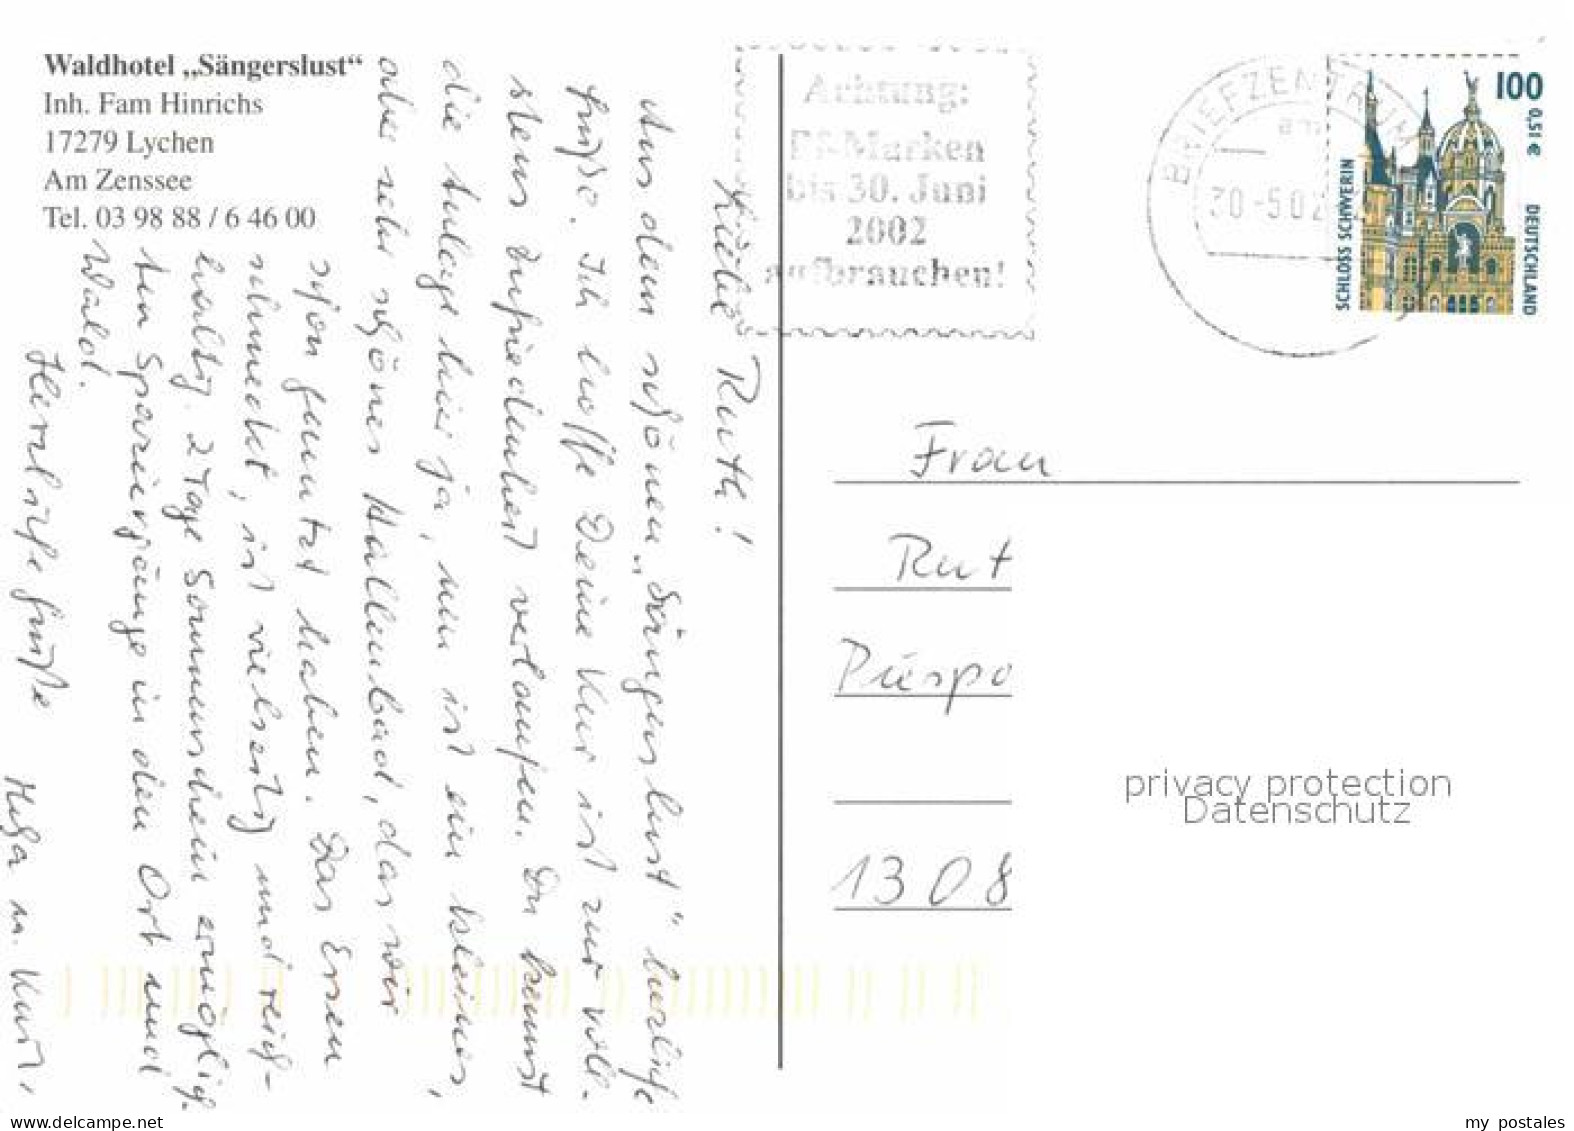 Waldhotel „Sängerslust“
Inh. Fam Hinrichs
17279 Lychen
Am Zenssee
Tel. 03 98 88 / 6 46 00
Liebe Ruth!
Aus dem schönen „Sängerslust“ herzliche
Grüße. Ich hoffe Deine Kur ist zur voll-
stens Zufriedenheit verlaufen. Du kennst
die Anlage hier ja, neu ist ein kleines,
aber sehr schönes Hallenbad, das wir
schon genutzt haben. Das Essen
schmeckt, ist vielseitig und reich-
haltig. 2 Tage Sonnenschein ermöglich-
ten Spaziergänge in den Ort und
Wald.
Herzliche Grüße
u. Kurt,
Achtung:
Pf-Marken
bis 30. Juni
2002
aufbrauchen!
BRIEFZENTRUM
30.-5.02
100
0,51 €
DEUTSCHLAND
SCHLOSS SCHWERIN
Frau
Rut
1308
privacy protection
Datenschutz
delcampe.net
my_postales